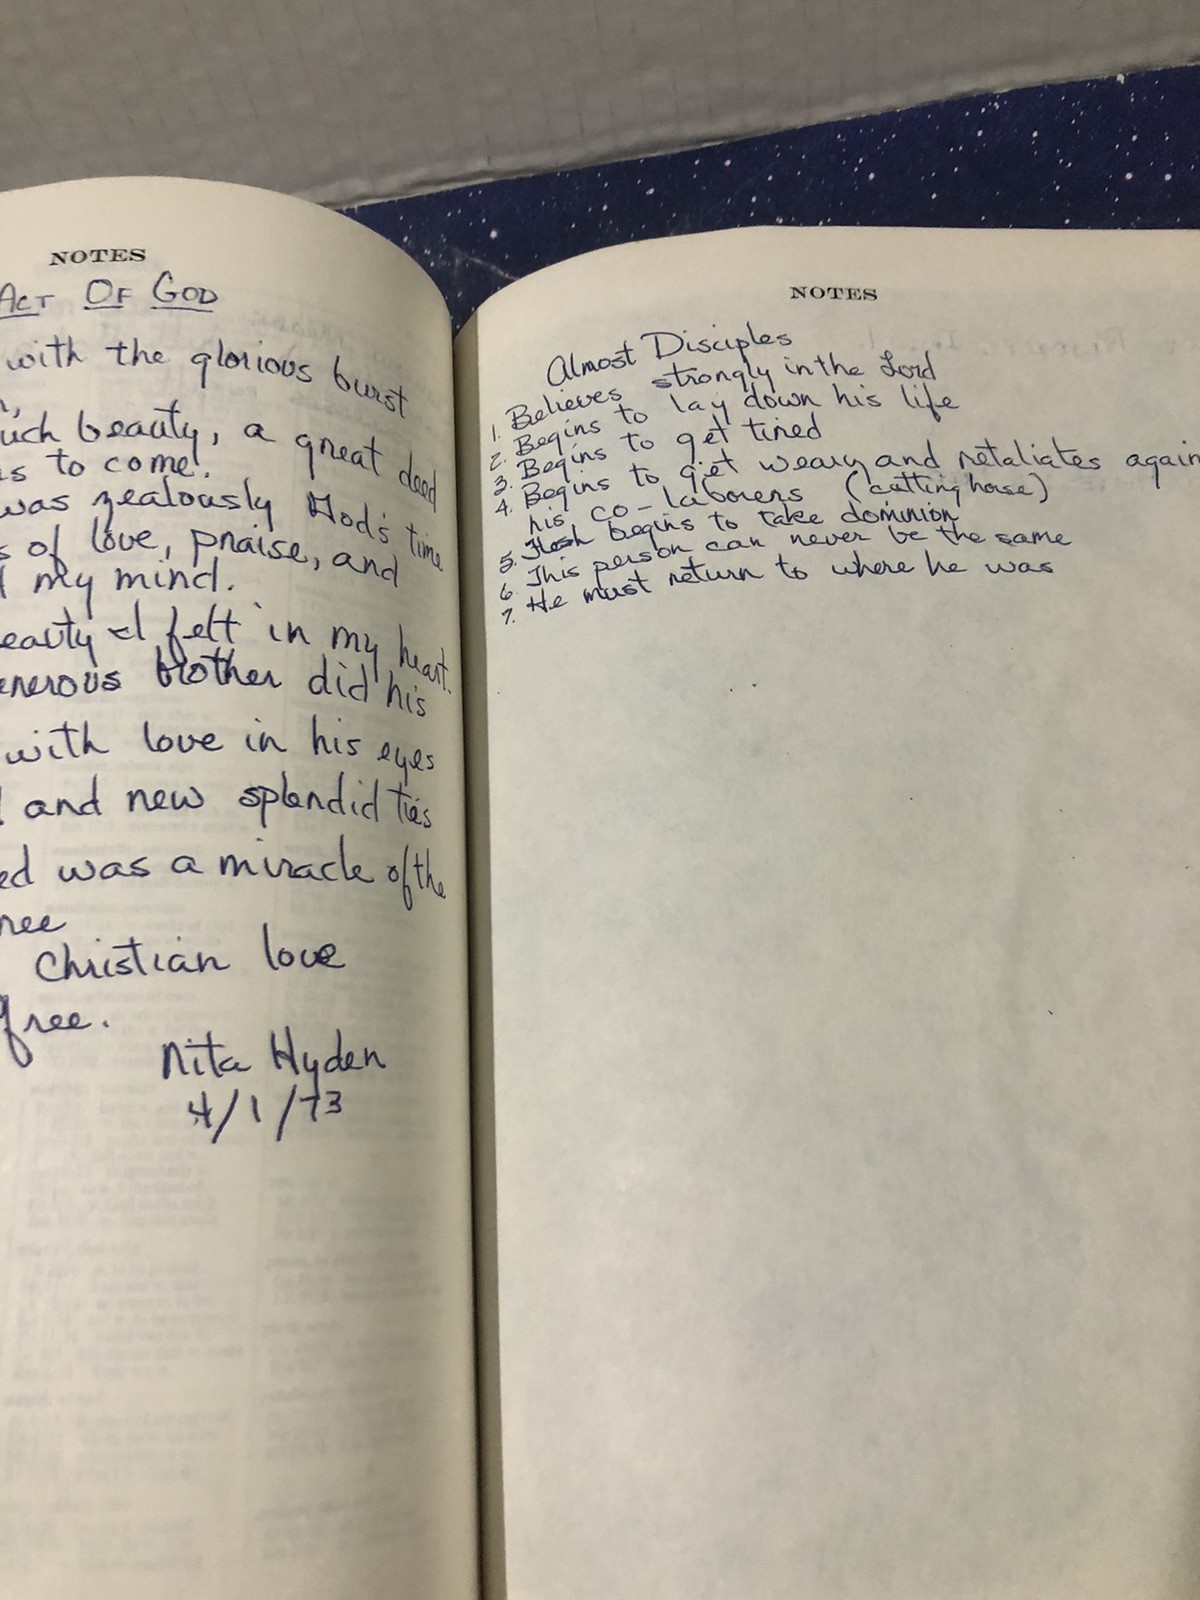 NOTES
ACT OF GOD
with the glorious burst
uch beauty, a great deed
s to come.
was zealously God's time
s of love, praise, and
my mind.
eauty I felt in my heart.
enerous brother did his
with love in his eyes
and new splendid ties
ed was a miracle of the
ree
Christian love
free.
Nita Hyden
4/1/73
NOTES
Almost Disciples
1. Believes strongly in the Lord
2. Begins to lay down his life
3. Begins to get tired
4. Begins to get weary and retaliates again
his co-laborers (cutting horse)
5. Flesh begins to take dominion
6. This person can never be the same
7. He must return to where he was